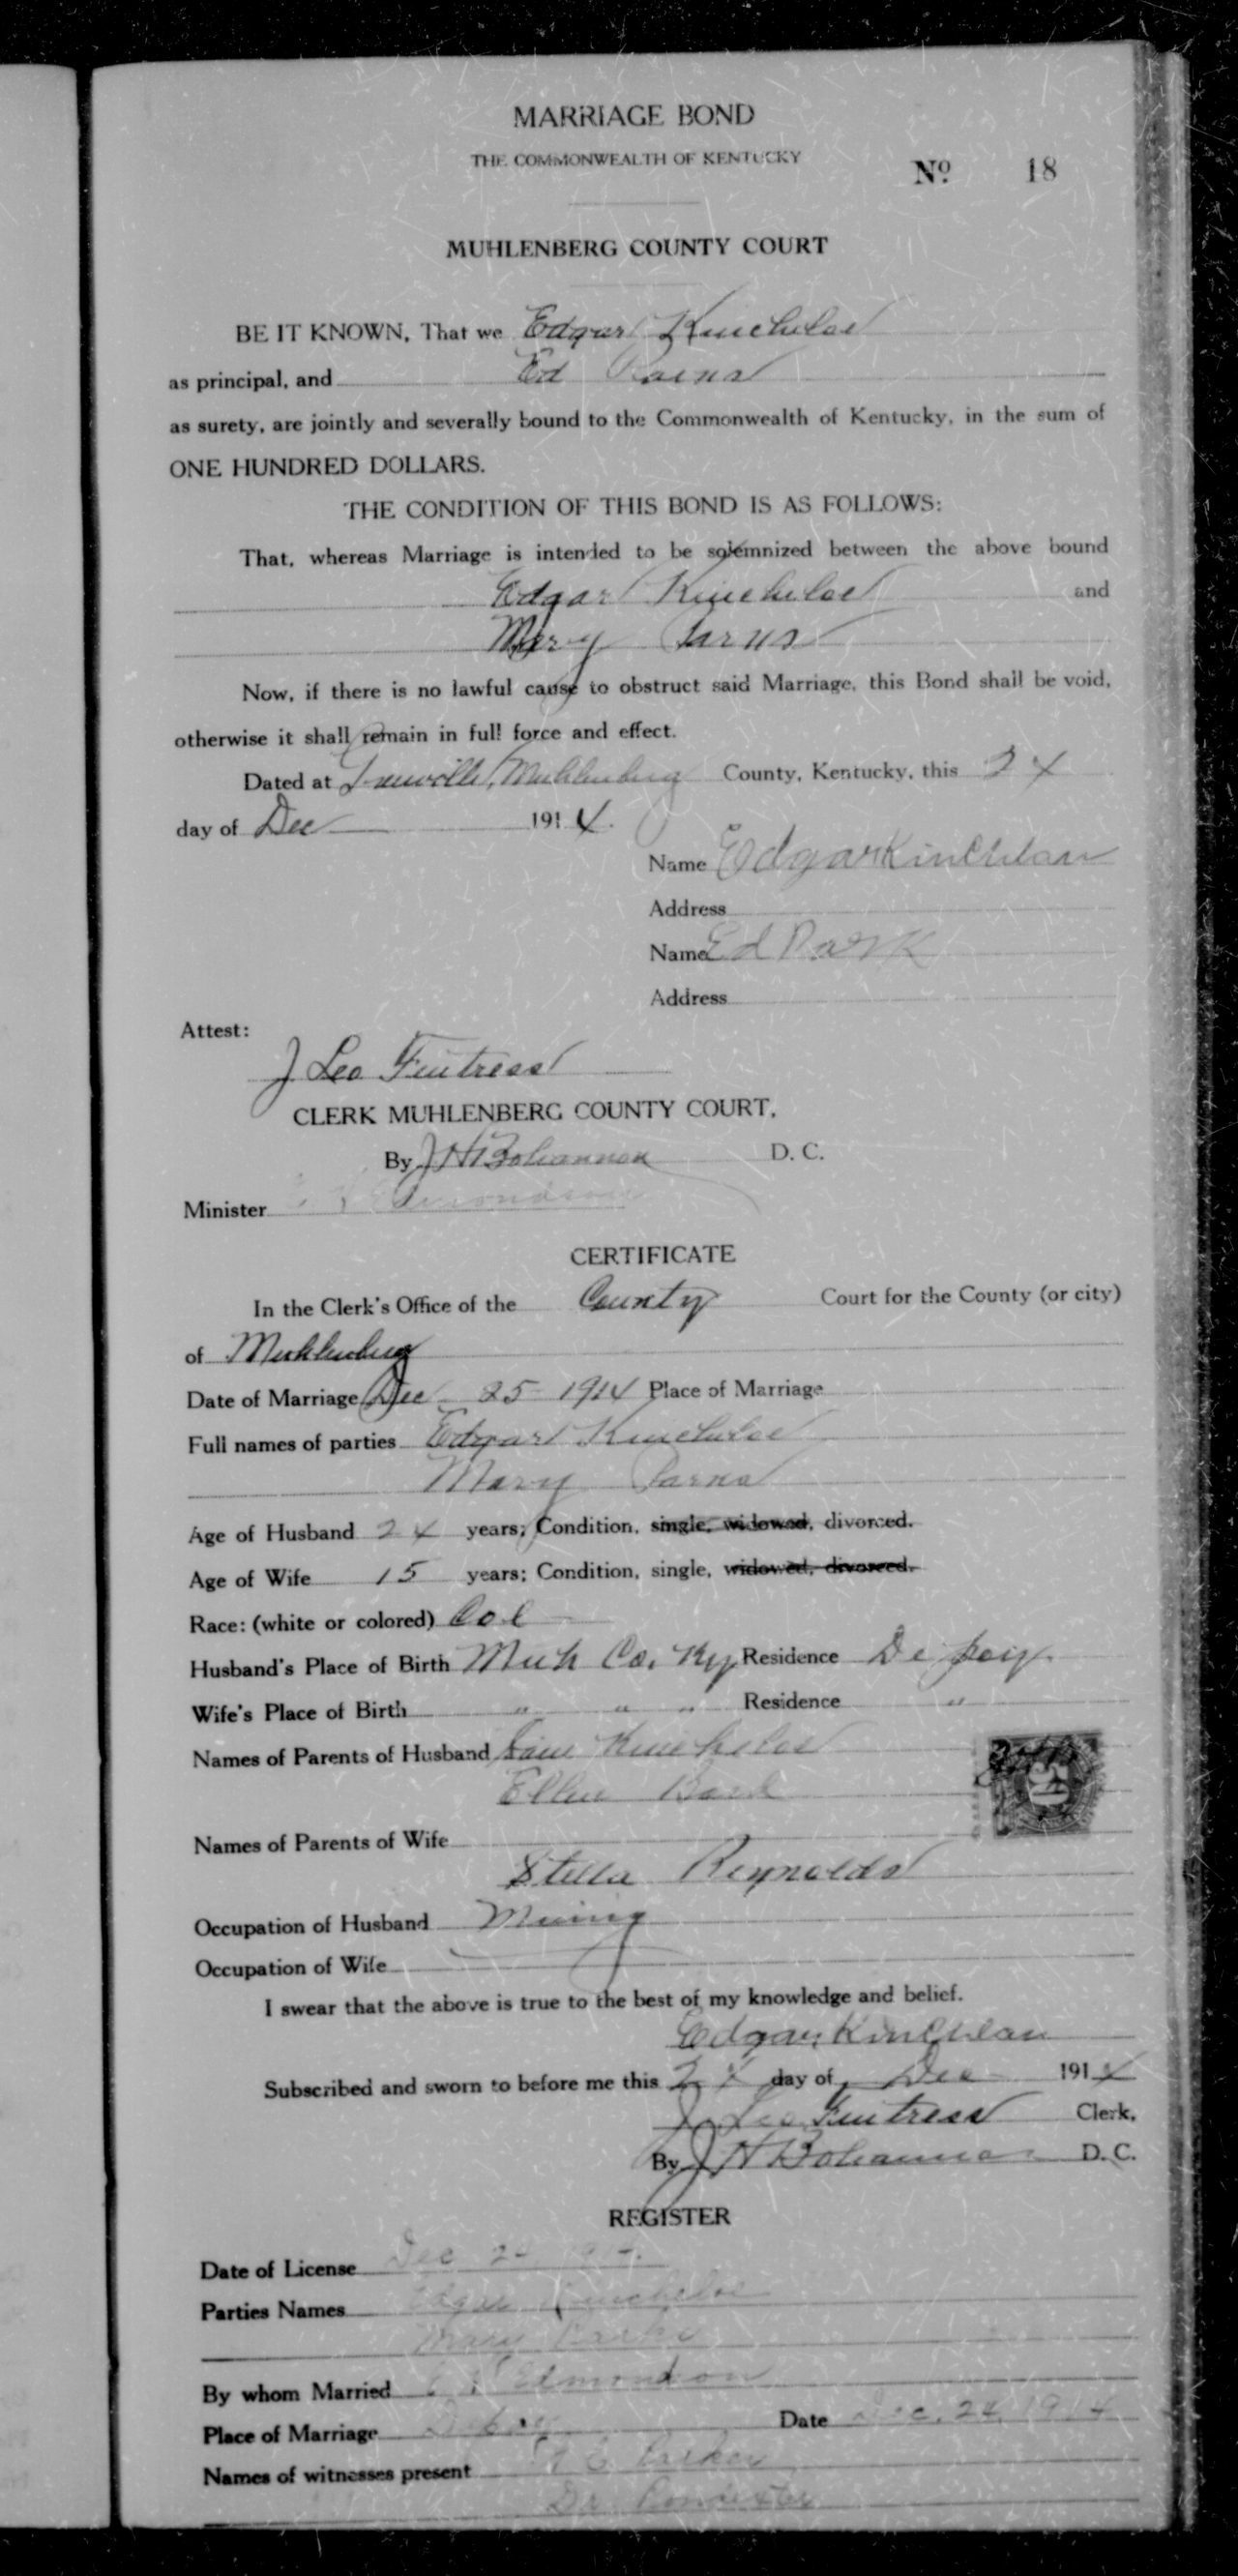 MARRIAGE BOND
THE COMMONWEALTH OF KENTUCKY
No 18
MUHLENBERG COUNTY COURT
BE IT KNOWN, That we Edgar Kincheloe
as principal, and Ed
as surety, are jointly and severally bound to the Commonwealth of Kentucky, in the sum of
ONE HUNDRED DOLLARS.
THE CONDITION OF THIS BOND IS AS FOLLOWS:
That, whereas Marriage is intended to be solemnized between the above bound
Edgar Kincheloe and
Mary
Now, if there is no lawful cause to obstruct said Marriage, this Bond shall be void,
otherwise it shall remain in full force and effect.
Dated at Greenville, Muhlenberg County, Kentucky, this 24
day of Dec 1914.
Name Edgar Kinchlaw
Address
Name Ed Park
Address
Attest:
J Leo Fentress
CLERK MUHLENBERG COUNTY COURT,
By J H Bohannon D. C.
Minister Edmondson
CERTIFICATE
In the Clerk's Office of the County Court for the County (or city)
of Muhlenberg
Date of Marriage Dec 25 1914 Place of Marriage
Full names of parties Edgar Kincheloe
Mary
Age of Husband 24 years; Condition, single, widowed, divorced.
Age of Wife 15 years; Condition, single, widowed, divorced.
Race: (white or colored) Col
Husband's Place of Birth Muh Co. Ky Residence Depoy.
Wife's Place of Birth " " " Residence "
Names of Parents of Husband Kincheloe
Ellen Bard
Names of Parents of Wife
Stella Reynolds
Occupation of Husband Mining
Occupation of Wife
I swear that the above is true to the best of my knowledge and belief.
Edgar Kinchlaw
Subscribed and sworn to before me this 24 day of Dec 1914
J Leo Fentress Clerk,
By J H Bohannon D. C.
REGISTER
Date of License Dec 24 1914.
Parties Names Edgar Kincheloe
Mary Parks
By whom Married Edmondson
Place of Marriage Depoy Date Dec. 24, 1914
Names of witnesses present
Dr Poindexter